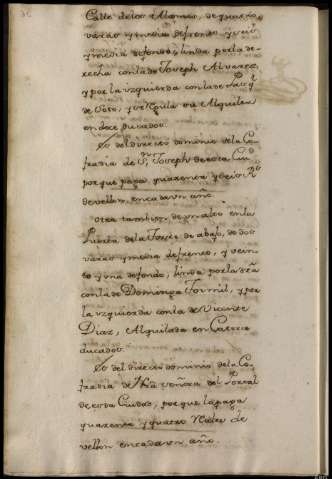 Calle de los Alamos, de quatro
varas y media de frente, y seis
y media de fondo, linda por la de-
recha con la de Joseph Alvarez,
y por la yzquierda con la de
de Soto, y se Alquila
en doce ducados.
Es del directo dominio de la Co-
fradia de Sn. Joseph de esta Ciud.
porque paga quarenta y seis Rs.
de vellon, en cada un año.
Otra tambien de un alto en la
Puerta de la Torre de abajo, de dos
varas y media de frente, y vein-
te y una de fondo, linda por la dra.
con la de Dominga Tormil, y por
la yzquierda con la de Vicente
Diaz, Alquilada en Catorce
ducados.
Es del directo dominio de la Co-
fradia de Nra. Señora del Portal
de esta Ciudad, porque la paga
quarenta y quatro Reales de
vellon en cada un año.